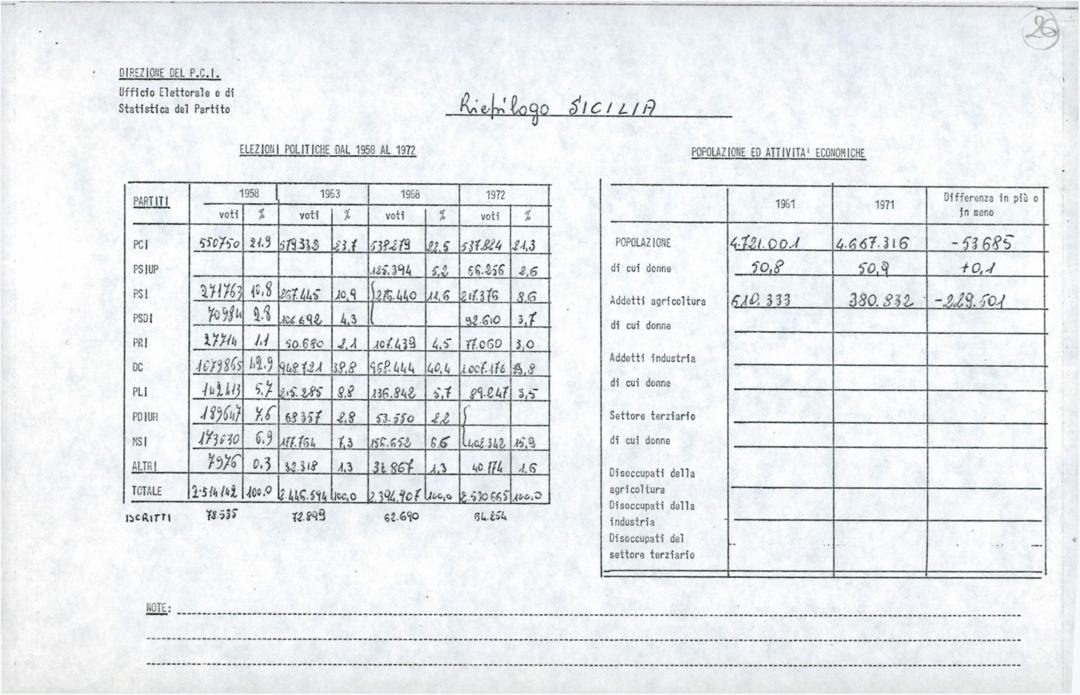 26
DIREZIONE DEL P.C.I.
Ufficio Elettorale e di
Statistica del Partito
Riepilogo SICILIA
ELEZIONI POLITICHE DAL 1958 AL 1972
PARTITI 1958 1963 1968 1972
voti % voti % voti % voti %
PCI 550750 21.9 579.332 23.7 538.279 22,5 537.824 21,3
PSIUP 125.394 5,2 56.256 2,6
PSI 271763 10,8 267.445 10,9 276.440 11,6 217.376 8,6
PSDI 70984 2.8 106.692 4,3 92.610 3,7
PRI 27714 1.1 50.680 2,1 107.439 4,5 77.060 3,0
DC 1079865 42.9 948.721 38,8 968.444 40,4 1.007.176 39,8
PLI 142413 5,7 215.285 8.8 136.842 5,7 89.247 3,5
PDIUM 189647 7.6 68357 2.8 53.550 2,2
MSI 173030 6.9 177.764 7,3 156.652 6,6 402.342 15,9
ALTRI 7976 0.3 32.318 1.3 31.867 1,3 40.774 1.6
TOTALE 2.514142 100.0 2.446.594 100,0 2.394.907 100,0 2.530.665 100.0
ISCRITTI 78.535 72.899 62.690 64.254
POPOLAZIONE ED ATTIVITA' ECONOMICHE
1961 1971 Differenza in più o
in meno
POPOLAZIONE 4.721.001 4.667.316 -53685
di cui donne 50,8 50,9 +0,1
Addetti agricoltura 610.333 380.832 -229.501
di cui donne
Addetti industria
di cui donne
Settore terziario
di cui donne
Disoccupati della
agricoltura
Disoccupati della
industria
Disoccupati del
settore terziario
NOTE: